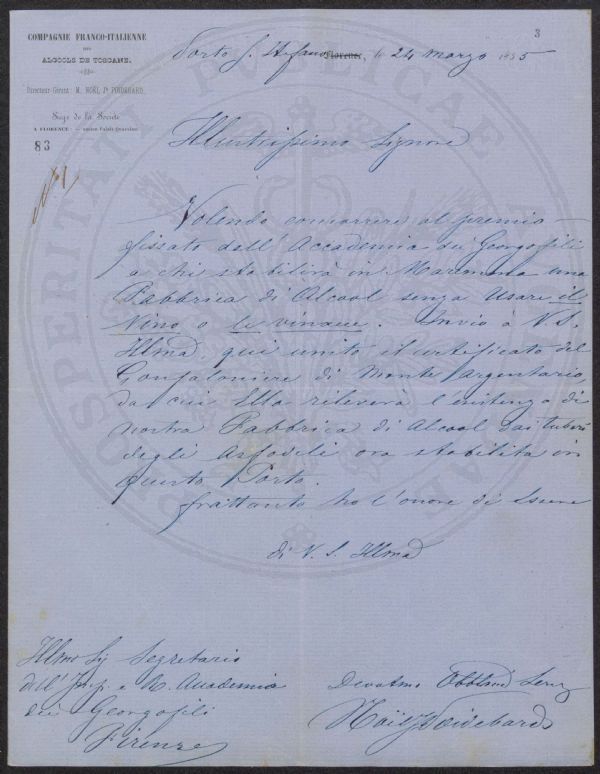 3
COMPAGNIE FRANCO-ITALIENNE
DES
ALCOOLS DE TOSCANE.
Directeur-Gérant: M. NOËL Jh POIDEBARD.
Siège de la Société
A FLORENCE
83
Porto S. Stefano Florence, le 24 Marzo 1855
Illustrissimo Signore
Volendo concorrere al premio
fissato dall'Accademia dei Georgofili
a chi stabilirà in Maremma una
Fabbrica di Alcool senza usare il
Vino o le vinacce. Invio à V.S.
Illma, qui unito il certificato del
Gonfaloniere di Monte Argentario,
da cui Ella rileverà l'esistenza di
nostra Fabbrica di Alcool dai tuberi
degli Asfodili ora stabilita in
questo Porto.
frattanto ho l'onore di Essere
di V. S. Illma
Illmo Sig Segretario
dell'Imp. e R. Accademia
dei Georgofili
Firenze
Devotmo Obblmo Serv
Noël Poidebard
PROSPERITATI PUBLICAE AUGENDAE